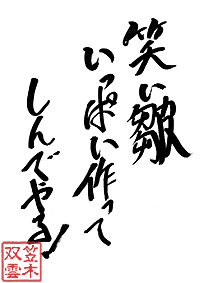 笑い皺
いっぱい作って
しんでやる!
笠木
双雲